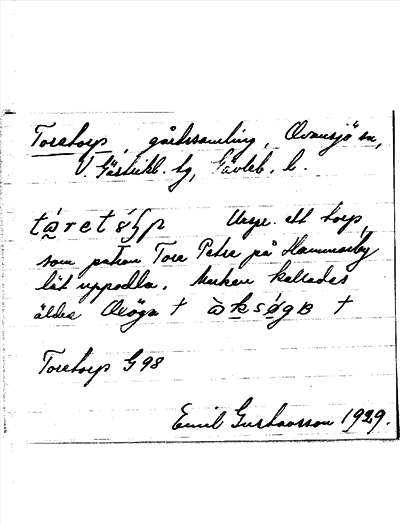 Toretorp, gårdssamling, Ovansjö sn,
V. Gästrikl. tg, Gävleb. l.
tåretårp Urspr. ett torp,
som patron Tore Petre på Hammarby
lät uppodla. Marken kallades
äldre Oxögn † òksógɴ †
Toretorp G 98
Emil Gustavsson 1929.